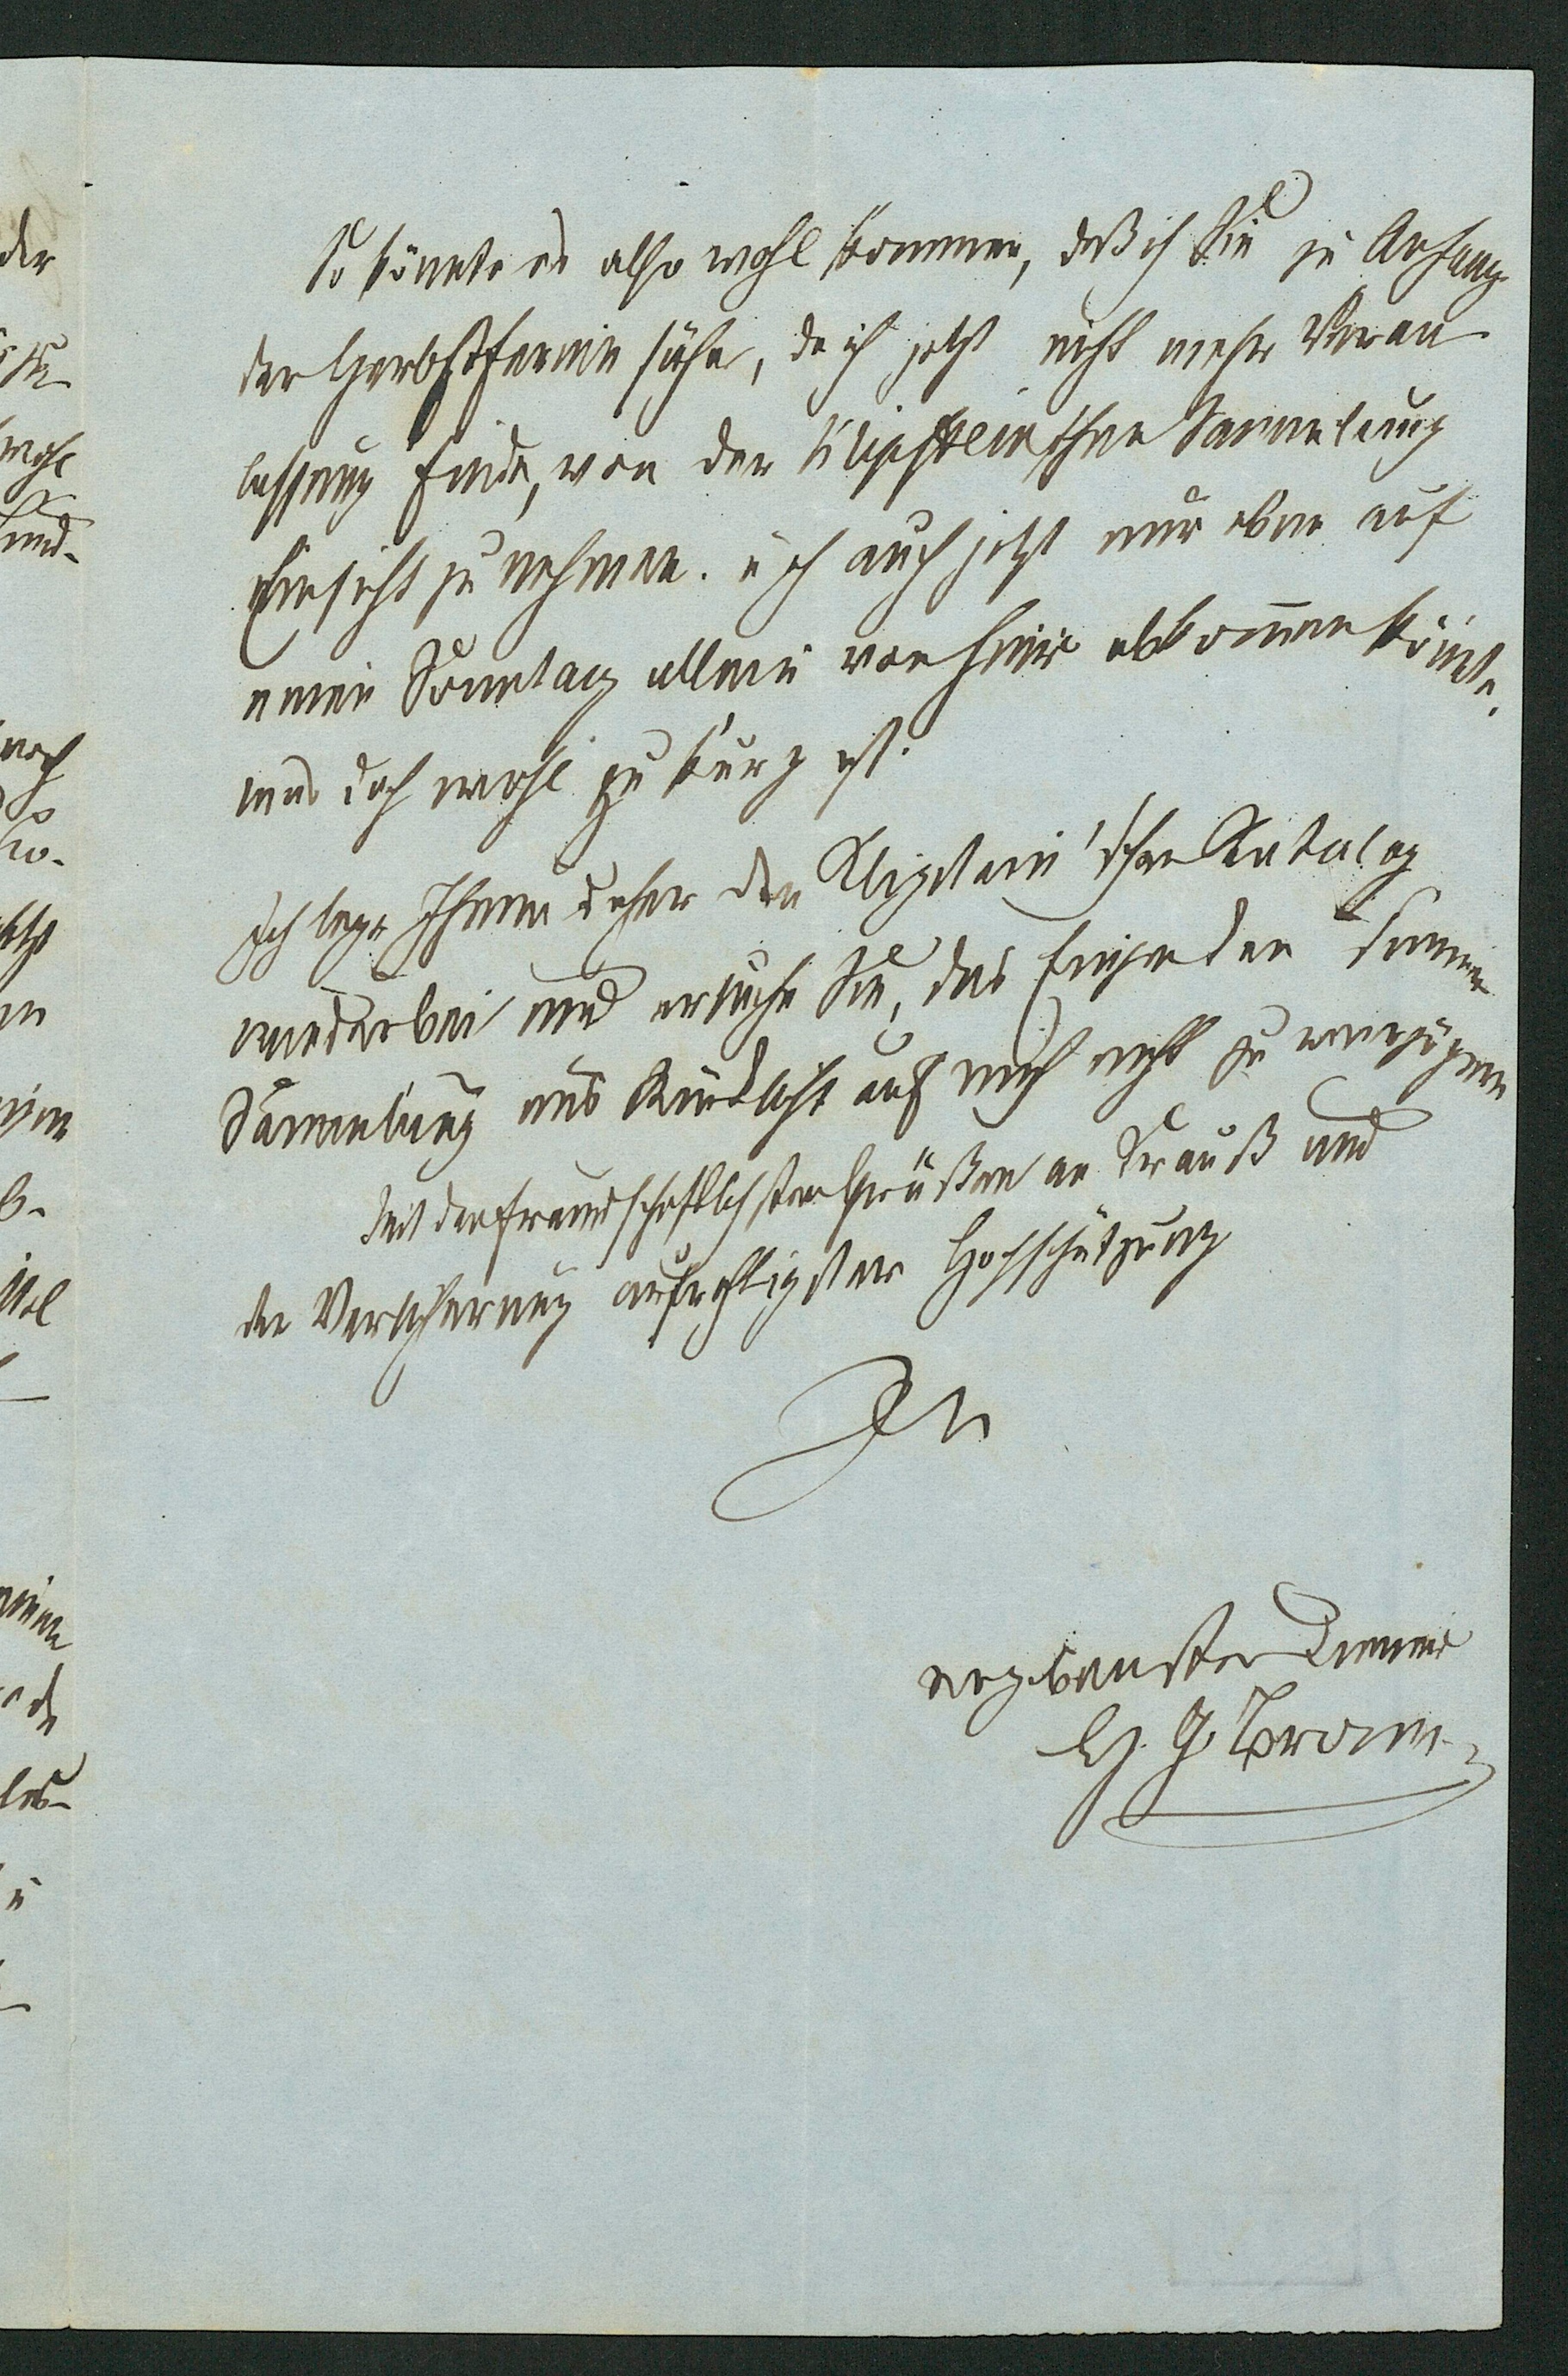 So könnte es also wohl kommen, daß ich Sie zu Anfang
der Herbstferien sähe, da ich jetzt nicht mehr Veran
lassung finde, von der Klipsteinschen Sammlung
Einsicht zu nehmen. u ich auch jetzt nur eben auf
einen Sonntag allein von hier abkom̄en könnte,
was doch wohl zu kurz ist.
Ich lege Ihnen daher den Klipstein'schen Katalog
wieder bei und ersuche Sie, das Eingehen
Sammlung aus Rücksicht auf mich nicht zu verzögern
Mit den freundschaftlichsten Grüßen an Krauß und
der Versicherung aufrichtigster Hochschätzung
Ihr
ergebenster Diener
H. G. Bronn